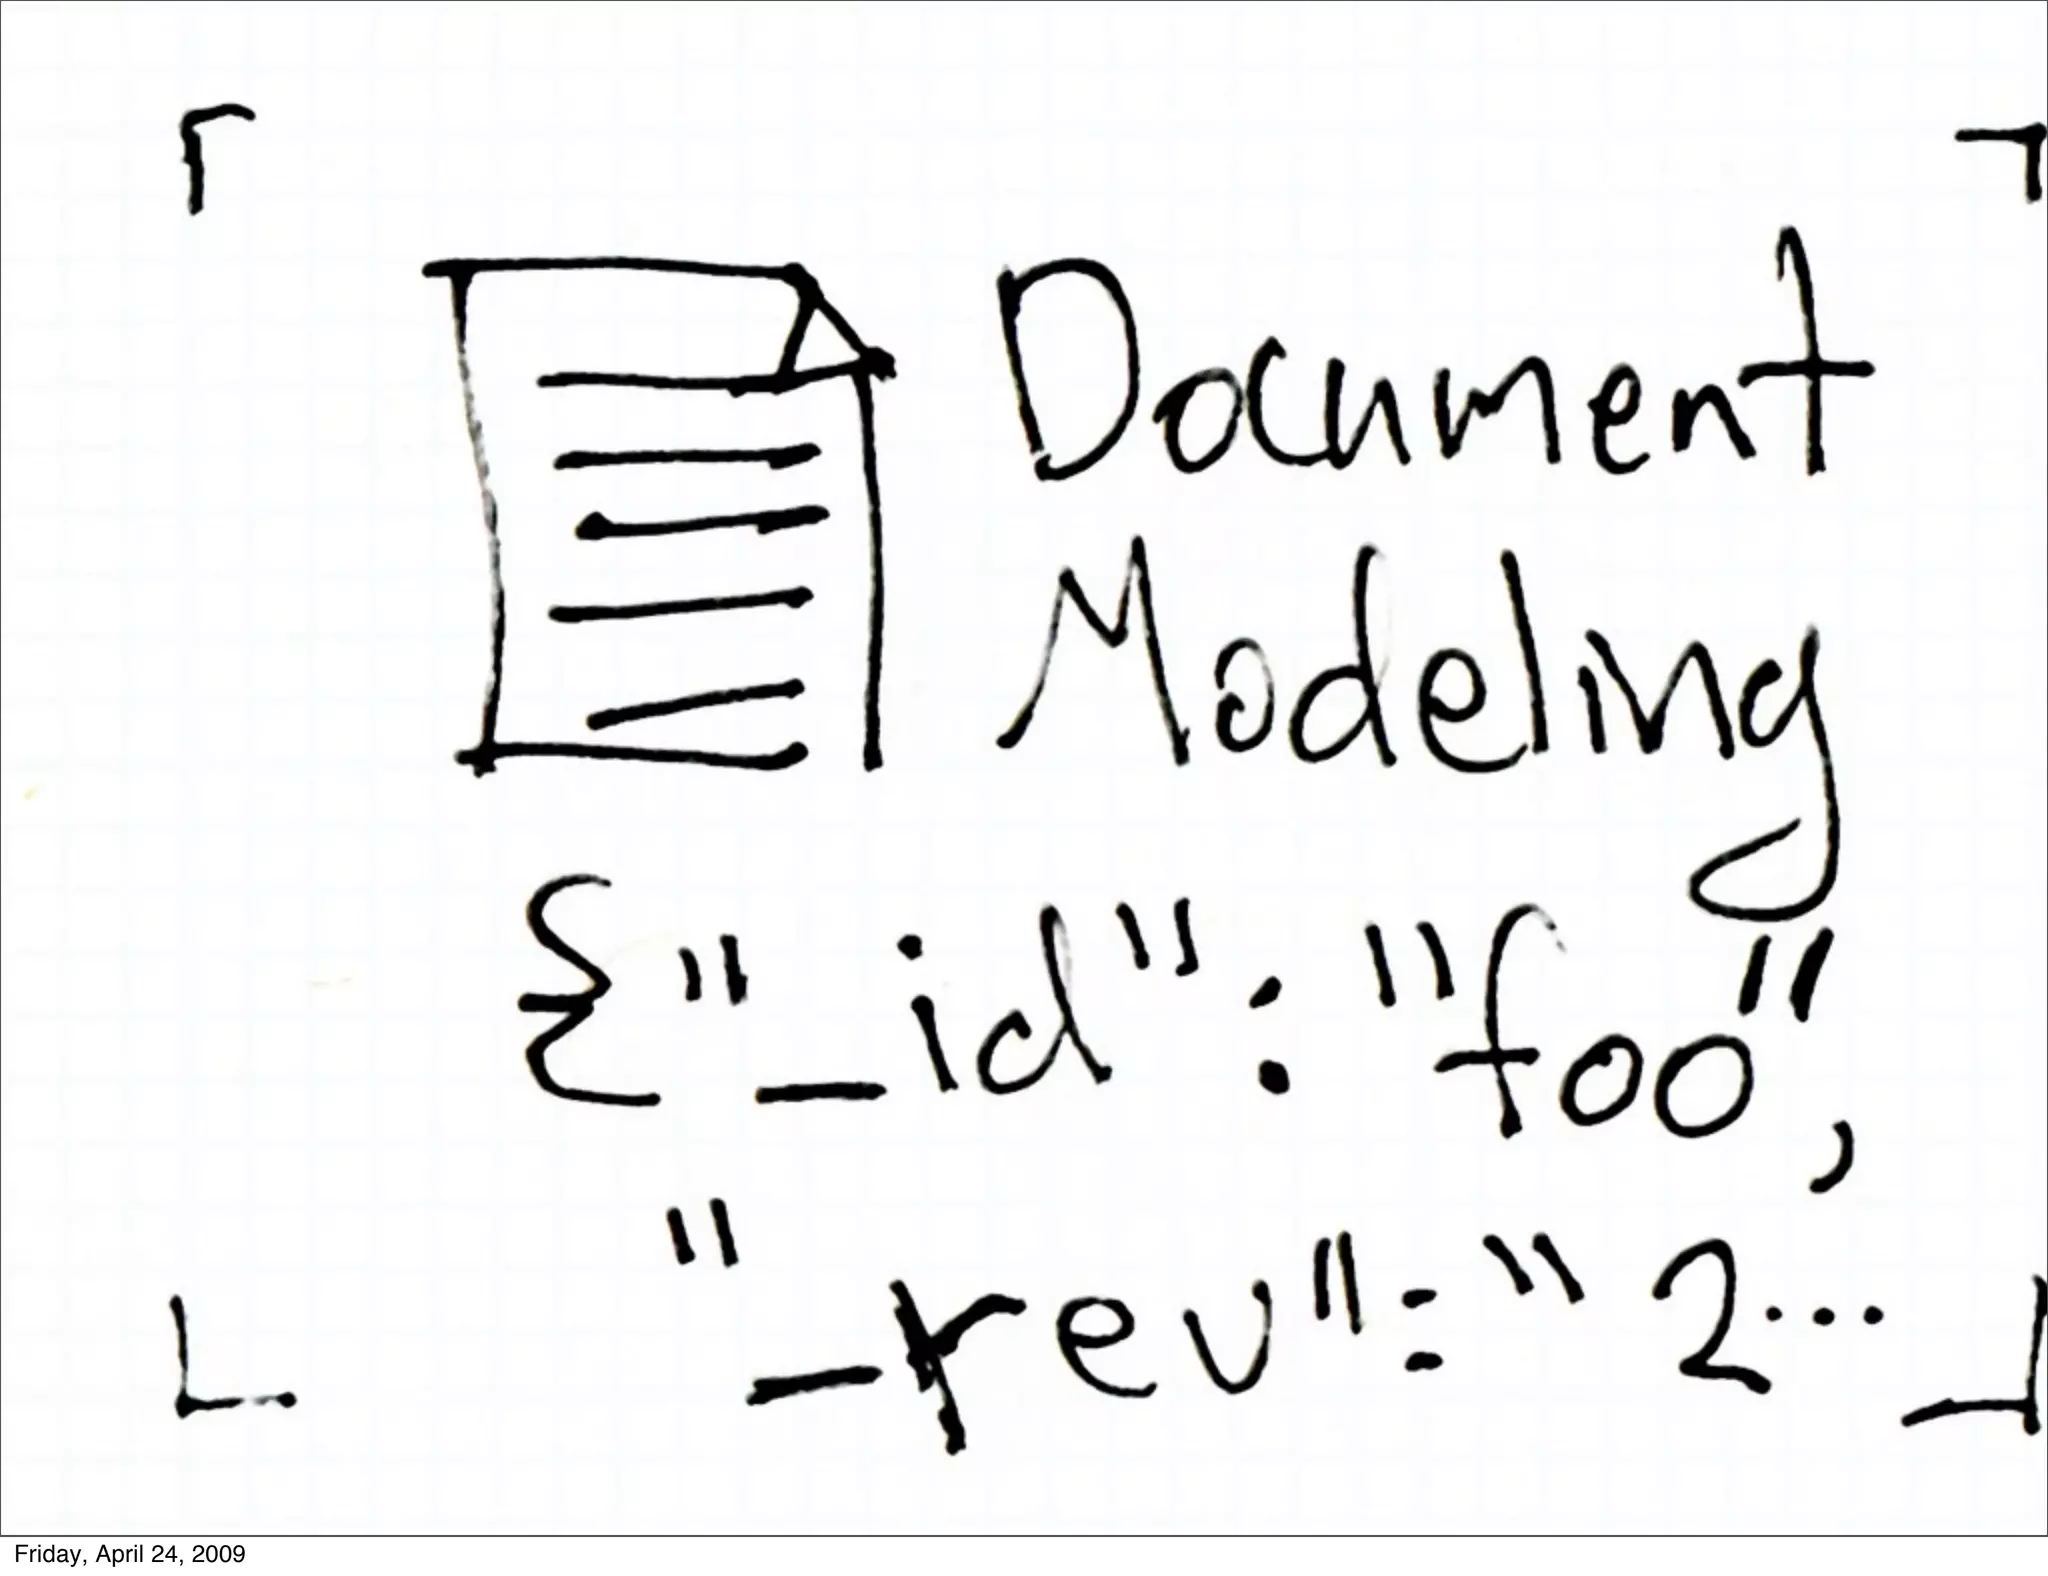 Document
Modeling
{"_id": "foo",
"_rev": "2...
Friday, April 24, 2009